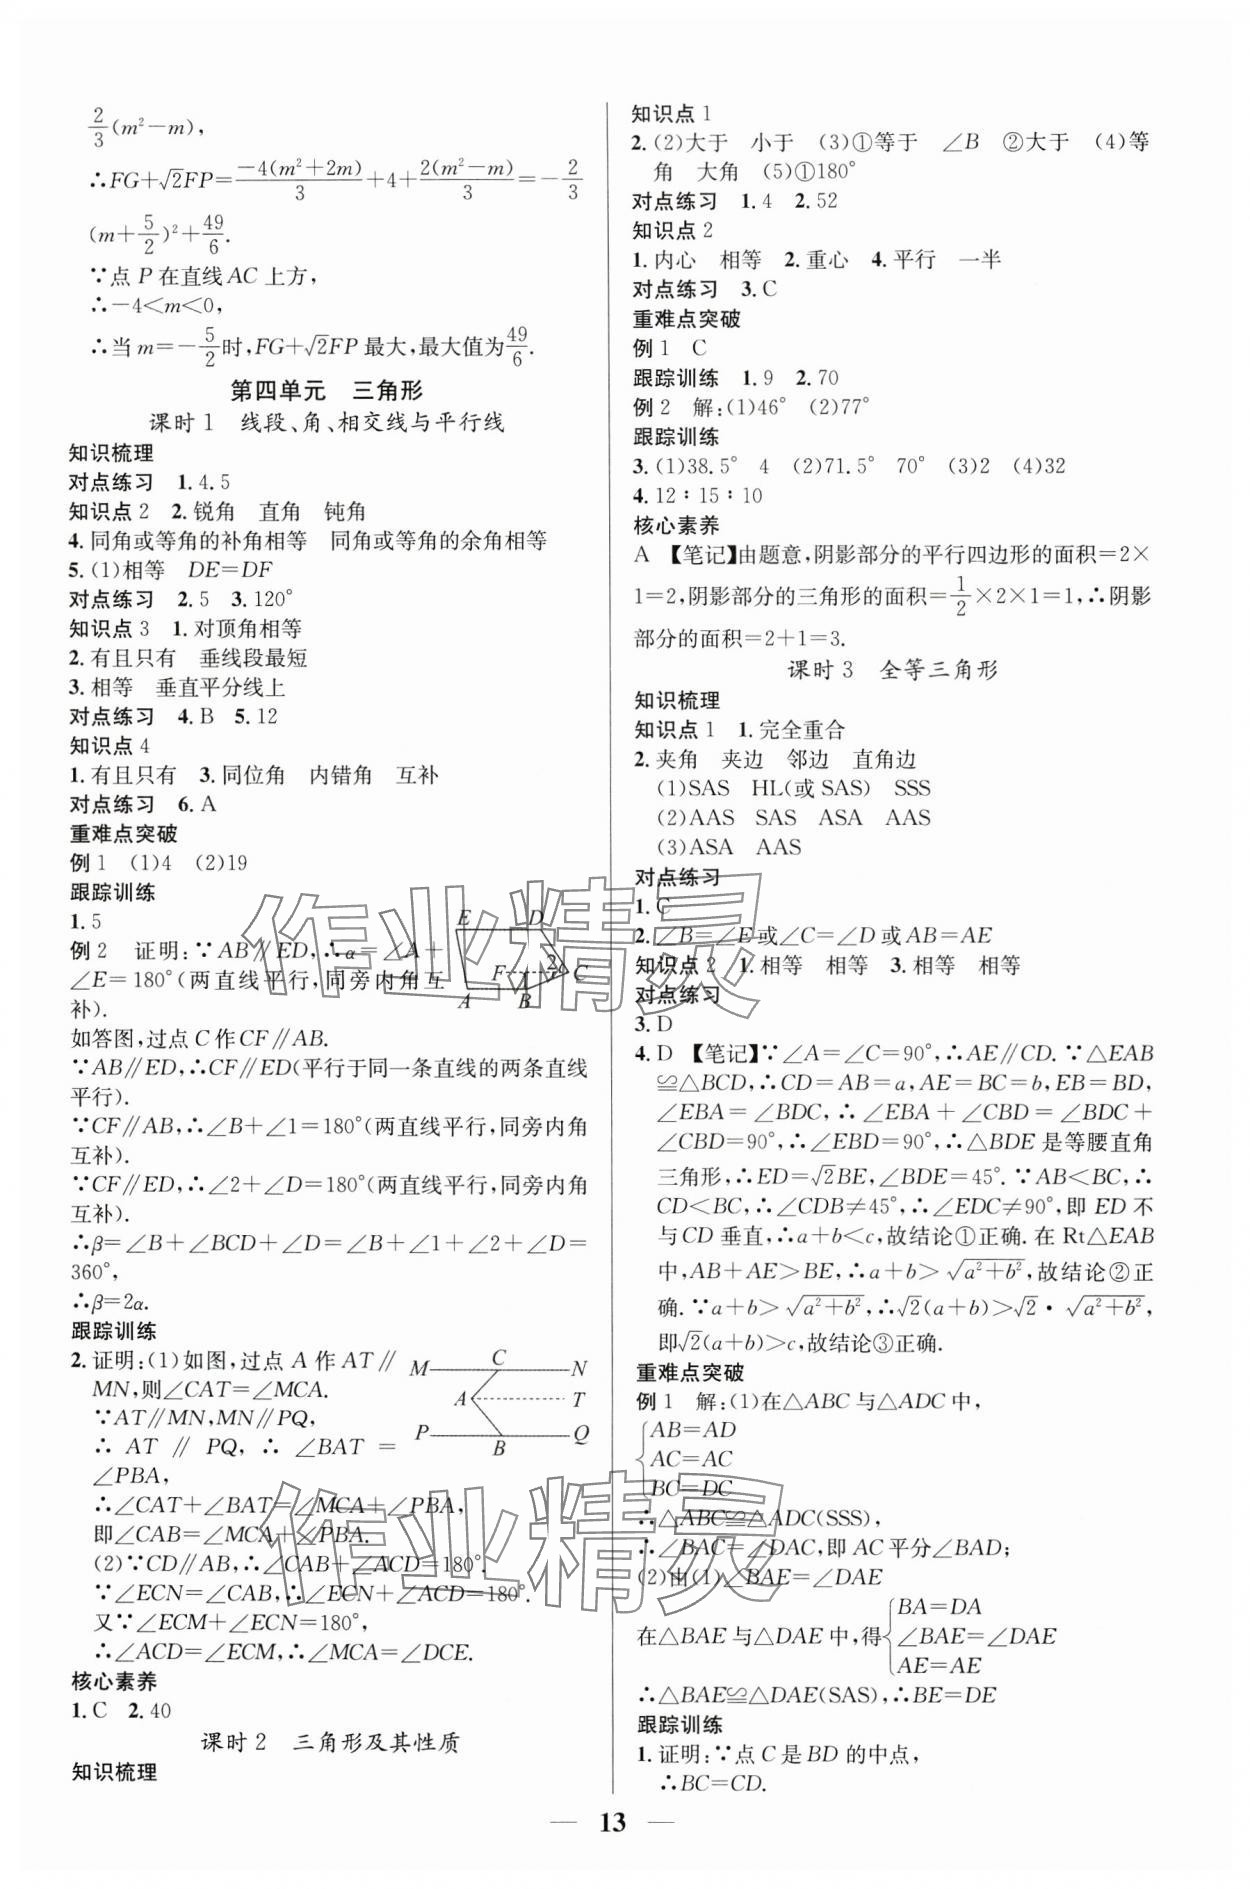 2/3(m²－m),
∴FG＋√2FP＝－4(m²＋2m)/3＋4＋2(m²－m)/3＝－2/3
(m＋5/2)²＋49/6.
∵点 P 在直线 AC 上方,
∴－4＜m＜0,
∴当 m＝－5/2时,FG＋√2FP 最大,最大值为49/6.
第四单元　三角形
课时 1　线段、角、相交线与平行线
知识梳理
对点练习　1.4.5
知识点 2　2.锐角　直角　钝角
4.同角或等角的补角相等　同角或等角的余角相等
5.(1)相等　DE＝DF
对点练习　2.5　3.120°
知识点 3　1.对顶角相等
2.有且只有　垂线段最短
3.相等　垂直平分线上
对点练习　4.B　5.12
知识点 4
1.有且只有　3.同位角　内错角　互补
对点练习　6.A
重难点突破
例 1　(1)4　(2)19
跟踪训练
1.5
例 2　证明:∵AB∥ED,∴α＝∠A＋
∠E＝180°(两直线平行,同旁内角互
补).
E D F 2 C 1 A B
如答图,过点 C 作 CF∥AB.
∵AB∥ED,∴CF∥ED(平行于同一条直线的两条直线
平行).
∵CF∥AB,∴∠B＋∠1＝180°(两直线平行,同旁内角
互补).
∵CF∥ED,∴∠2＋∠D＝180°(两直线平行,同旁内角
互补).
∴β＝∠B＋∠BCD＋∠D＝∠B＋∠1＋∠2＋∠D＝
360°,
∴β＝2α.
跟踪训练
2.证明:(1)如图,过点 A 作 AT∥
MN,则∠CAT＝∠MCA.
∵AT∥MN,MN∥PQ,
∴ AT ∥ PQ, ∴ ∠BAT ＝
∠PBA,
M C N
A T
P B Q
∴∠CAT＋∠BAT＝∠MCA＋∠PBA,
即∠CAB＝∠MCA＋∠PBA.
(2)∵CD∥AB,∴∠CAB＋∠ACD＝180°.
∵∠ECN＝∠CAB,∴∠ECN＋∠ACD＝180°.
又∵∠ECM＋∠ECN＝180°,
∴∠ACD＝∠ECM,∴∠MCA＝∠DCE.
核心素养
1.C　2.40
课时 2　三角形及其性质
知识梳理
知识点 1
2.(2)大于　小于　(3)①等于　∠B　②大于　(4)等
角　大角　(5)①180°
对点练习　1.4　2.52
知识点 2
1.内心　相等　2.重心　4.平行　一半
对点练习　3.C
重难点突破
例 1　C
跟踪训练　1.9　2.70
例 2　解:(1)46°　(2)77°
跟踪训练
3.(1)38.5°　4　(2)71.5°　70°　(3)2　(4)32
4.12∶15∶10
核心素养
A　【笔记】由题意,阴影部分的平行四边形的面积＝2×
1＝2,阴影部分的三角形的面积＝1/2×2×1＝1,∴阴影
部分的面积＝2＋1＝3.
课时 3　全等三角形
知识梳理
知识点 1　1.完全重合
2.夹角　夹边　邻边　直角边
(1)SAS　HL(或 SAS)　SSS
(2)AAS　SAS　ASA　AAS
(3)ASA　AAS
对点练习
1.C
2.∠B＝∠E 或∠C＝∠D 或 AB＝AE
知识点 2　1.相等　相等　3.相等　相等
对点练习
3.D
4.D　【笔记】∵∠A＝∠C＝90°,∴AE∥CD.∵△EAB
≌△BCD,∴CD＝AB＝a,AE＝BC＝b,EB＝BD,
∠EBA＝∠BDC,∴∠EBA＋∠CBD＝∠BDC＋
∠CBD＝90°,∴∠EBD＝90°,∴△BDE 是等腰直角
三角形,∴ED＝√2BE,∠BDE＝45°.∵AB＜BC,∴
CD＜BC,∴∠CDB≠45°,∴∠EDC≠90°,即 ED 不
与 CD 垂直,∴a＋b＜c,故结论①正确.在 Rt△EAB
中,AB＋AE＞BE,∴a＋b＞√(a²＋b²),故结论②正
确.∵a＋b＞√(a²＋b²),∴√2(a＋b)＞√2·√(a²＋b²),
即√2(a＋b)＞c,故结论③正确.
重难点突破
例 1　解:(1)在△ABC 与△ADC 中,
AB＝AD
AC＝AC
BC＝DC
∴△ABC≌△ADC(SSS),
∴∠BAC＝∠DAC,即 AC 平分∠BAD;
(2)由(1)∠BAE＝∠DAE
在△BAE 与△DAE 中,得
BA＝DA
∠BAE＝∠DAE
AE＝AE
∴△BAE≌△DAE(SAS),∴BE＝DE
跟踪训练
1.证明:∵点 C 是 BD 的中点,
∴BC＝CD.
— 13 —
作业精灵
作业精灵